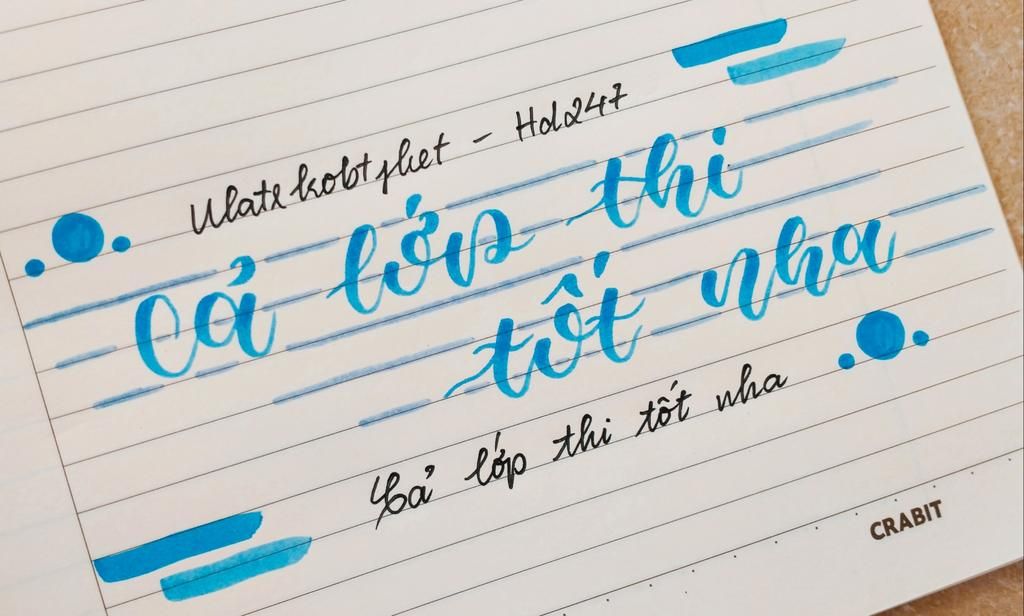 Hd247
Cả lớp thi
tốt nha
Cả lớp thi tốt nha
CRABIT